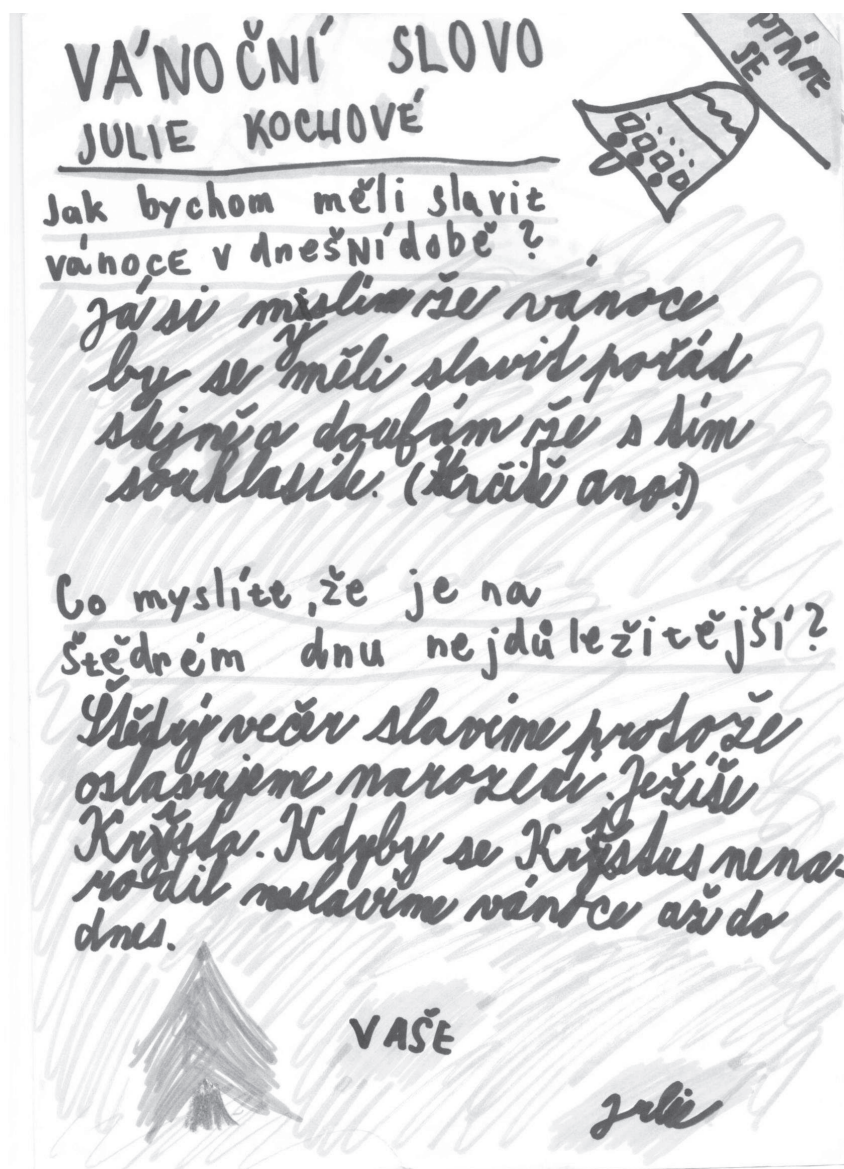 VÁNOČNÍ SLOVO
JULIE KOCHOVÉ
PTÁME
SE
Jak bychom měli slavit
vánoce v dnešní době?
Já si myslim že vánoce
by se měli slavit pořád
stejně a doufám že s tím
souhlasíte. (Určitě ano!)
Co myslíte, že je na
štědrém dnu nejdůležitější?
Štědrý večer slavíme protože
oslavujeme narození Ježíše
Krysta. Kdyby se Krystus nena-
rodil neslavíme vánoce až do
dnes.
VAŠE
Julie